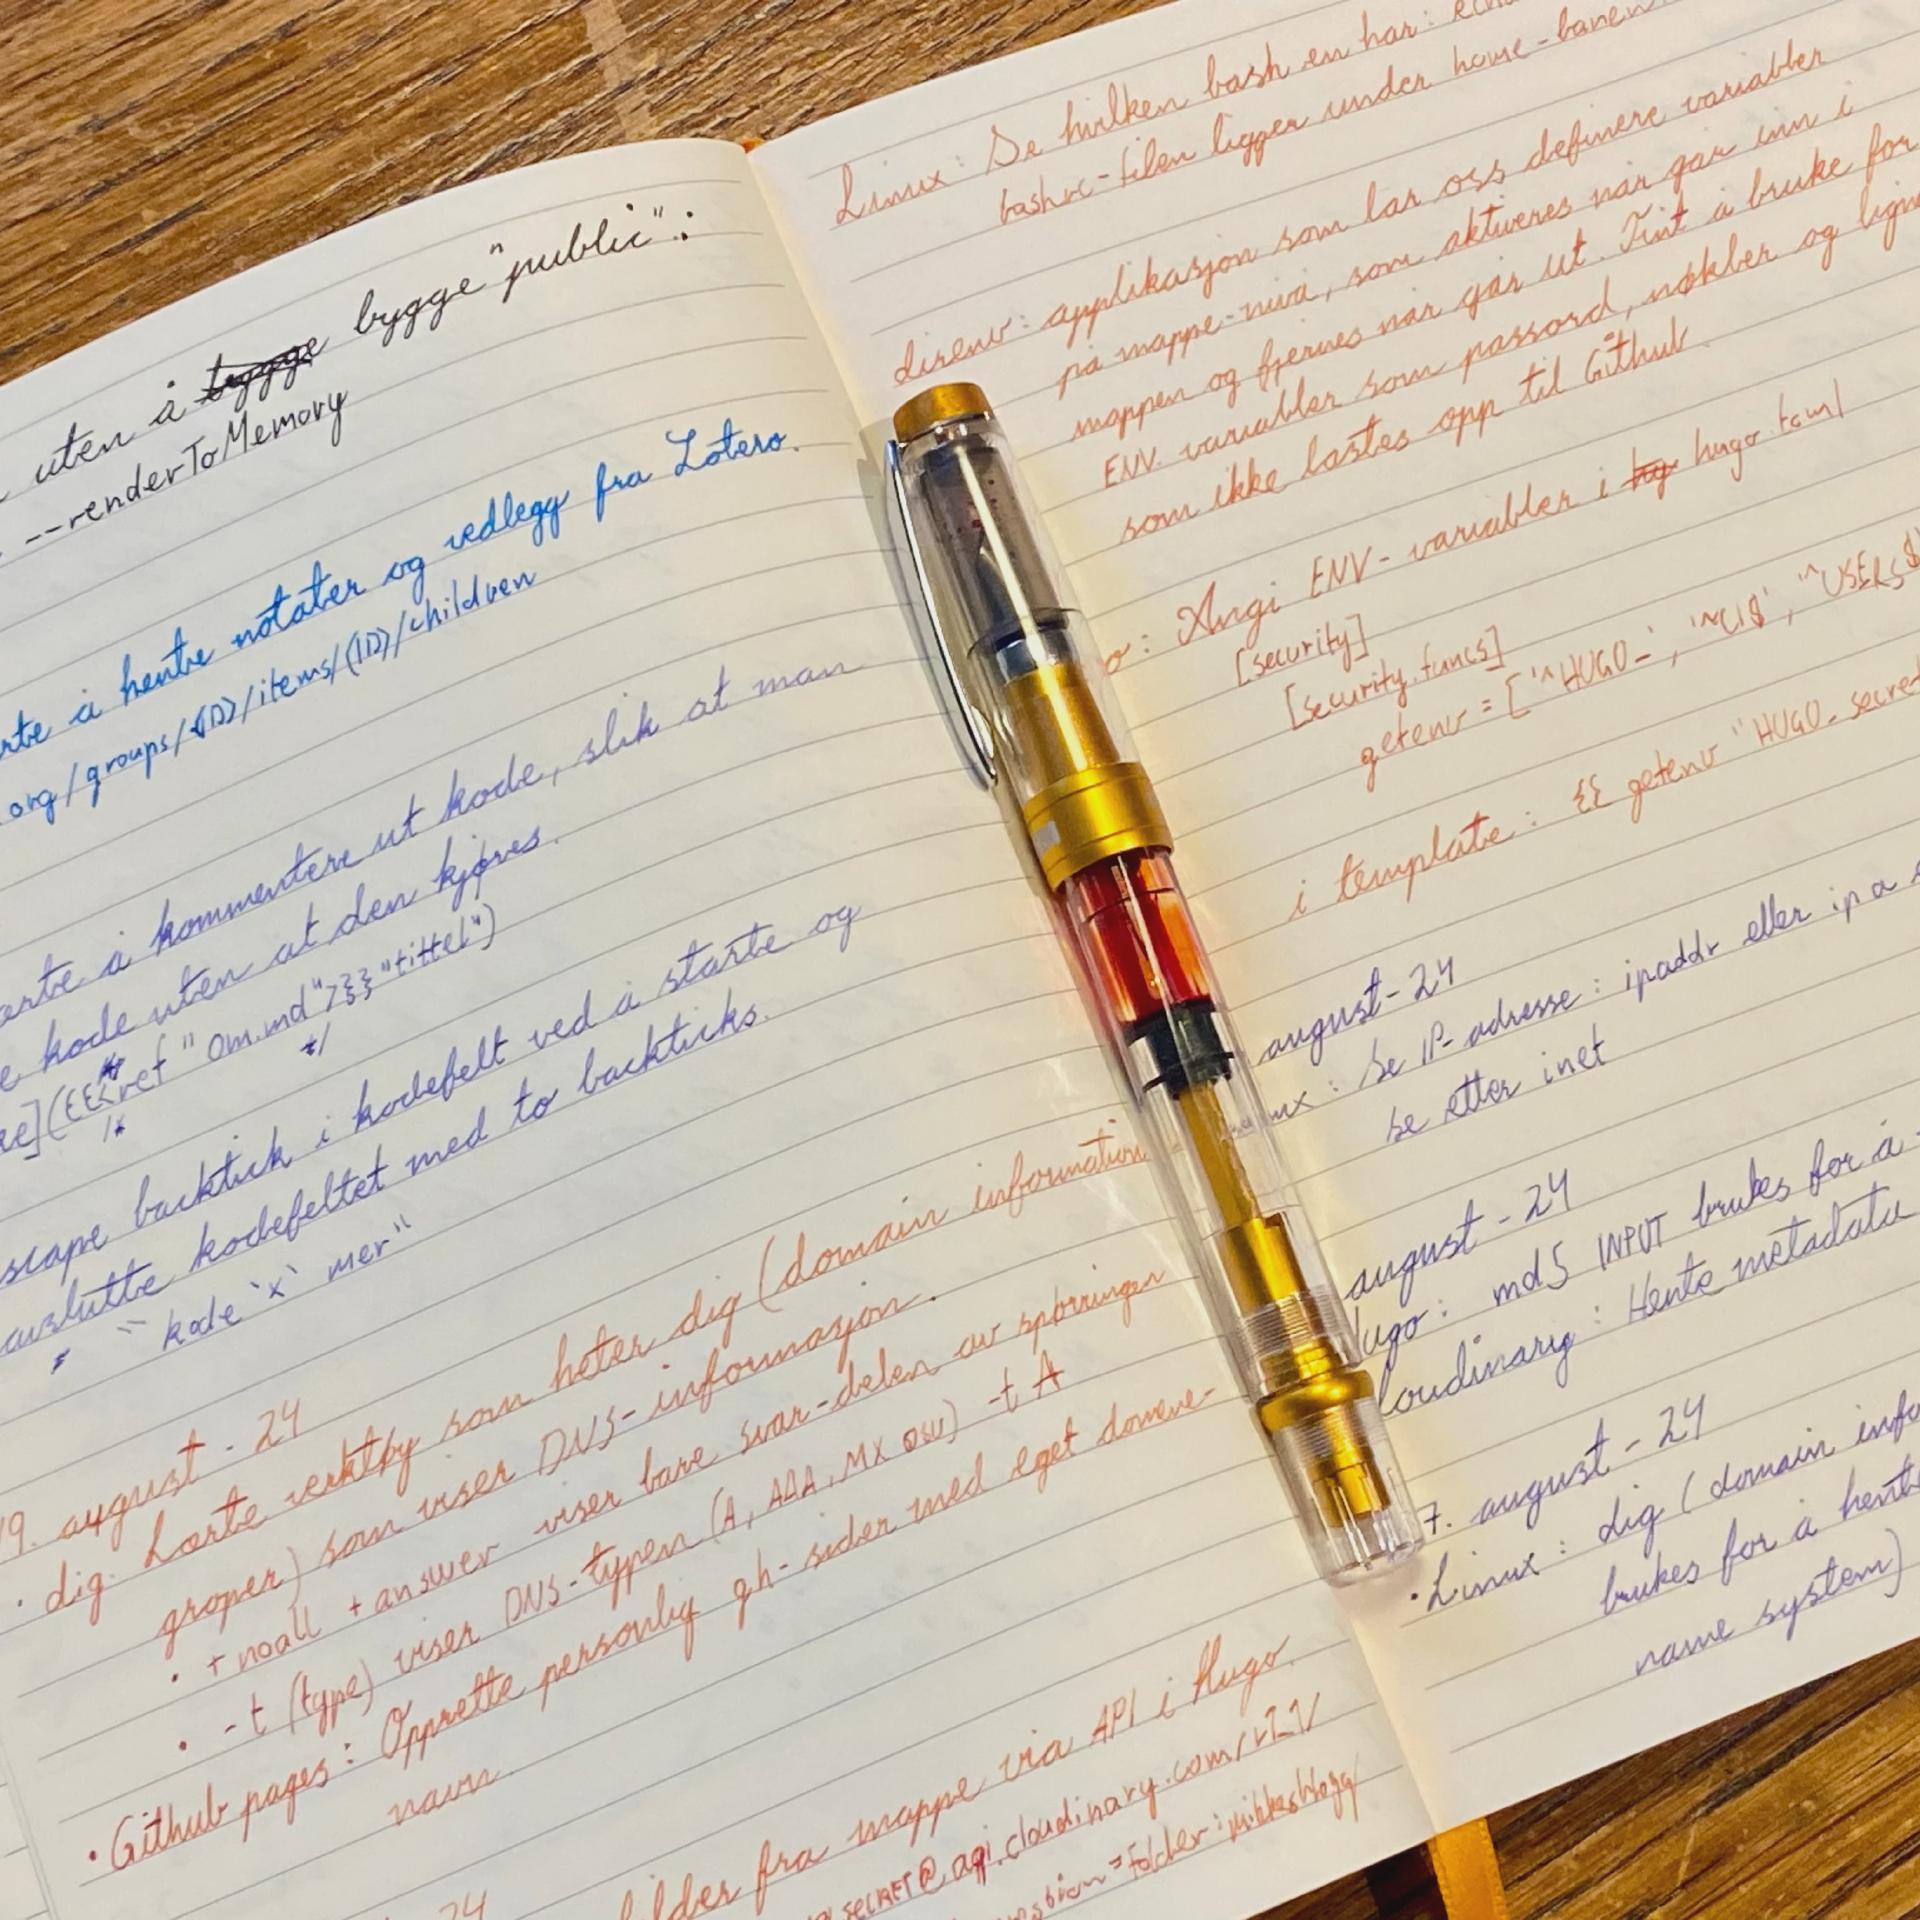 uten å bygge "public":
--renderToMemory
å hente notater og vedlegg fra Zotero.
.org/groups/(ID)/items/(ID)/children
å kommentere ut kode, slik at man
kode uten at den kjøres.
ref "om.md">}} "tittel")
/* */
backtick i kodefelt ved å starte og
avslutte kodefeltet med to backticks.
`` kode `x` mer ``
19. august - 24
• dig: Lærte verktøy som heter dig (domain information
groper) som viser DNS-informasjon.
• +noall +answer viser bare svar-delen av spørringen
• -t (type) viser DNS-typen (A, AAA, MX osv) -t A
• Github pages: Opprette personlig gh-sider med eget domene-
navn.
24
bilder fra mappe via API i Hugo.
SECRET@api.cloudinary.com/v1_1/
=folder:mikkesblogg
Linux: Se hvilken bash en har:
bashrc-filen ligger under home-banen
direnv: applikasjon som lar oss definere variabler
på mappe-nivå, som aktiveres når går inn i
mappen og fjernes når går ut. Fint å bruke for
ENV. variabler som passord, nøkler og
som ikke lastes opp til Github.
Angi ENV-variabler i hugo.toml
[security]
[security.funcs]
getenv = ['^HUGO_', '^CI$', '^USER$
i template: {{ getenv "HUGO_secret
august - 24
Se IP-adresse: ipaddr eller ip a
se etter inet
august - 24
md5 INPUT brukes for å
Hente metadata
7. august - 24
• Linux: dig (domain
brukes for å hente
name system)